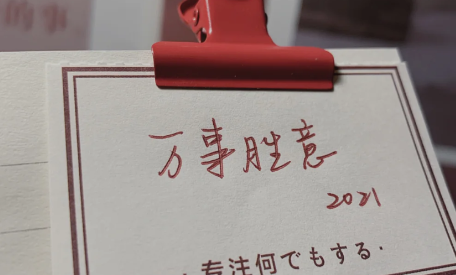 万事胜意
2021
专注何でもする.